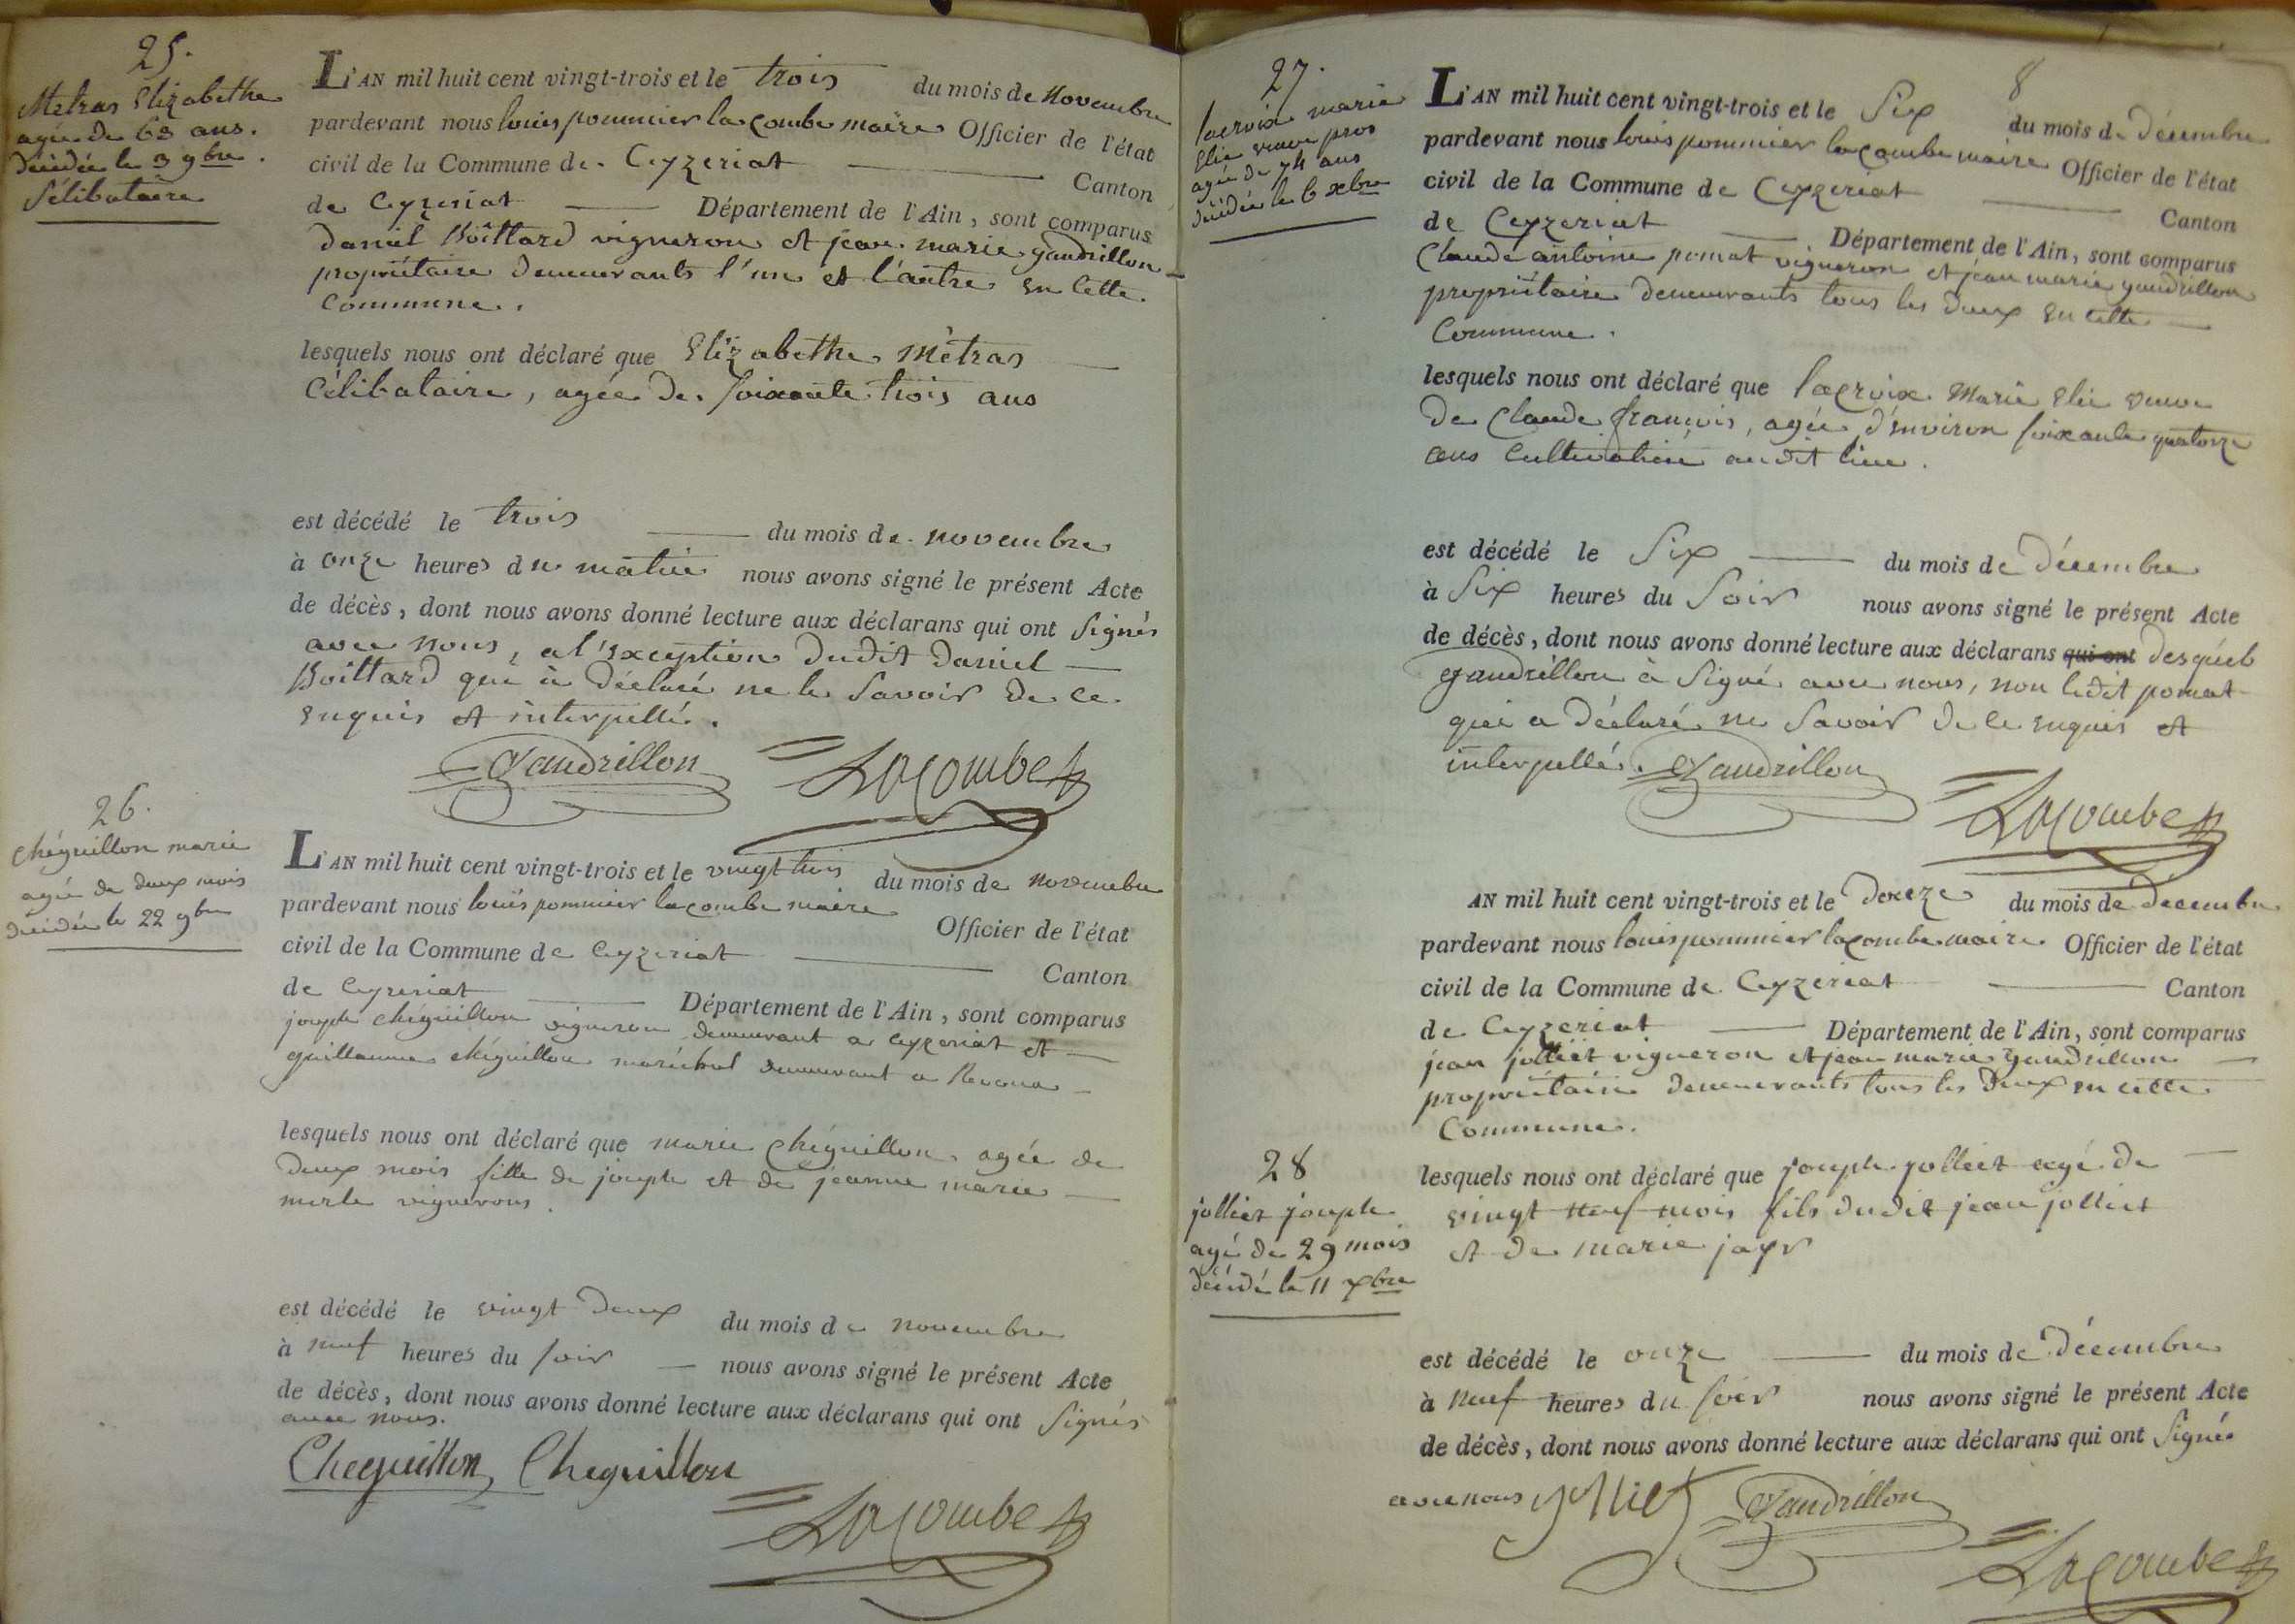 25.
Metras Elizabethe
agée de 63 ans.
décédée le 3 9bre.
Célibataire
L'AN mil huit cent vingt-trois et le trois du mois de Novembre
pardevant nous louis pommier lacombe maire Officier de l'état
civil de la Commune de Ceyzeriat Canton
de Ceyzeriat Département de l'Ain, sont comparus
daniel Boittard vigneron et jean marie gaudrillon
propriétaire demeurants l'un et l'autre en cette
Commune.
lesquels nous ont déclaré que Elizabethe Mètras
Célibataire, agée de soixante trois ans
est décédé le trois du mois de novembre
à onze heures du matin nous avons signé le présent Acte
de décès, dont nous avons donné lecture aux déclarans qui ont signés
avec nous, a l'exception dudit daniel
Boittard qui à déclaré ne le savoir de ce
enquis et interpellé.
Gaudrillon Lacombe
26.
Chéguillon marie
agée de deux mois
décédée le 22 9bre
L'AN mil huit cent vingt-trois et le vingt trois du mois de novembre
pardevant nous louis pommier lacombe maire Officier de l'état
civil de la Commune de Ceyzeriat Canton
de Ceyzeriat Département de l'Ain, sont comparus
joseph chéguillon vigneron demeurant a Ceyzeriat et
guillaume chéguillon maréchal demeurant a Revona
lesquels nous ont déclaré que marie Chéguillon agée de
deux mois fille de joseph et de jeanne marie
merle vignerons.
est décédé le vingt deux du mois de novembre
à neuf heures du soir nous avons signé le présent Acte
de décès, dont nous avons donné lecture aux déclarans qui ont signés
avec nous.
Cheguillon Cheguillon
Lacombe
8
27.
lacroix marie
Elie veuve pros
agée de 74 ans
décédée le 6 xbre
L'AN mil huit cent vingt-trois et le Six du mois de décembre
pardevant nous louis pommier lacombe maire Officier de l'état
civil de la Commune de Ceyzeriat Canton
de Ceyzeriat Département de l'Ain, sont comparus
Claude antoine pomat vigneron et jean marie gaudrillon
propriétaire demeurants tous les deux en cette
Commune.
lesquels nous ont déclaré que lacroix Marie Elie veuve
de Claude françois, agée d'environ soixante quatorze
ans cultivatrice audit lieu.
est décédé le Six du mois de décembre
à Six heures du Soir nous avons signé le présent Acte
de décès, dont nous avons donné lecture aux déclarans qui ont desquels
gaudrillon à signé avec nous, non ledit pomat
qui a déclaré ne savoir de ce enquis et
interpellé. Gaudrillon
Lacombe
AN mil huit cent vingt-trois et le douze du mois de decembre
pardevant nous louis pommier lacombe maire Officier de l'état
civil de la Commune de Ceyzeriat Canton
de Ceyzeriat Département de l'Ain, sont comparus
jean jolliet vigneron et jean marie gaudrillon
propriétaire demeurants tous les deux en cette
Commune.
28
jolliet joseph
agé de 29 mois
décédé le 11 xbre
lesquels nous ont déclaré que joseph jolliet agé de
vingt neuf mois fils dudit jean jolliet
et de marie jayr
est décédé le onze du mois de décembre
à neuf heures du soir nous avons signé le présent Acte
de décès, dont nous avons donné lecture aux déclarans qui ont signé
avec nous jolliet Gaudrillon
Lacombe